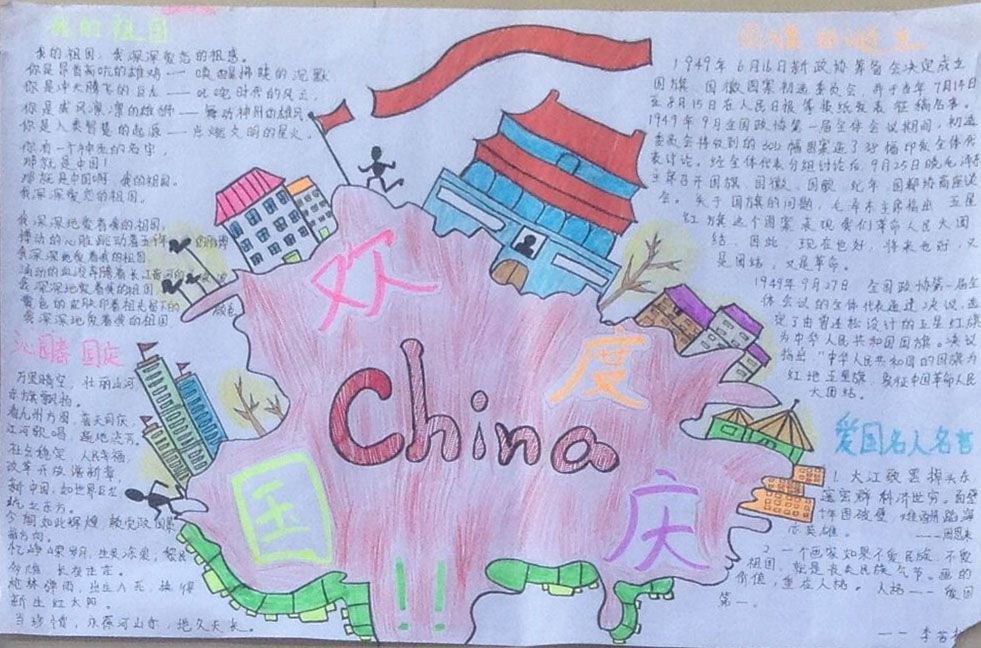 我的祖国
我的祖国，我深深爱恋的祖国。
你是昂首高吭的雄鸡——唤醒拂晓的沉默
你是冲天腾飞的巨龙——叱咤时代的风云，
你是威风凛凛的雄狮——舞动神州的雄风，
你是人类智慧的起源——点燃文明的星火。
你有一个神圣的名字，
那就是中国！
那就是中国啊，我的祖国。
我深深爱恋的祖国。
我深深地爱着我的祖国，
搏动的心脏跳动着五千年
我深深地爱着我的祖国
流动的血液奔腾着长江黄河的
我深深地爱着我的祖国
黄色的皮肤印着祖先留下的 颜色
我深深地爱着我的祖国
沁园春 国庆
万里晴空，壮丽山河
赤旗飘扬。
看九州方圆，普天同庆，
江河歌唱，遍地流芳。
社会稳定，人民幸福，
改革开放谱新章
新中国，如世界巨龙
屹立东方。
今朝如此辉煌
前方向。
忆峥嵘岁月，
长在
枪林弹雨，出生入死，
新生红太阳。
永葆河山赤，地久天长。
欢
度
国
庆
China
!!
国旗的诞生
1949年6月16日新政协筹备会决定成立
国旗、国徽图案初选委员会，并于当年7月14日
至8月15日在人民日报等报纸发表征稿启事。
1949年9月全国政协第一届全体会议期间，初选
委员会将收到的
表讨论。经全体代表分组讨论后，9月25日晚毛泽东
主席召开国旗、国徽、国歌、纪年、国都协商座谈
会。关于国旗的问题，毛泽东主席指出 五星
红旗这个图案表现我们革命人民大团
结 因此 现在也好，将来也好 又
是团结，又是革命。
1949年9月27日 全国政协第一届全
体会议的全体代表通过决议，选
定了由曾连松设计的五星红旗
为中华人民共和国国旗。决议
指出，“中华人民共和国的国旗为
红地五星旗，象征中国革命人民
大团结。
爱国名人名言
1. 大江歌罢掉头东
邃密群科济世穷。面壁
十年图破壁，难酬蹈海
亦英雄。
——周恩来
2. 一个画家如果不爱民族，不爱
祖国，就是丧失民族气节。画的
价值，重在人格。人格——爱国
第一。
——李苦禅